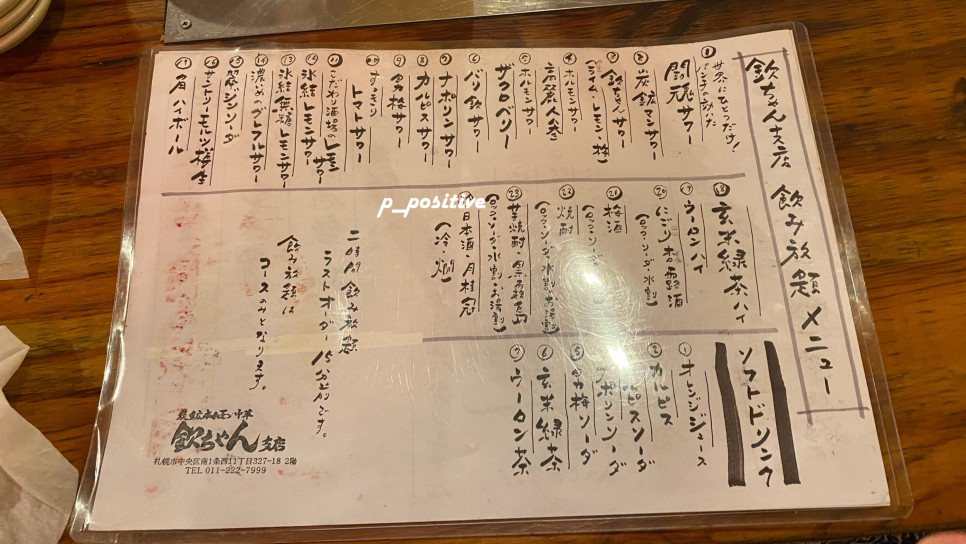 欽ちゃん支店 飲み放題 メニュー
① 世界にひとつだけ!
パンチの効いた
闘魂サワー
② 炭鉱マンサワー
③ 欽ちゃんサワー
(ライム、レモン、梅)
④ ホルモンサワー
高麗人参
⑤ ホルモンサワー
ザクロベリー
⑥ バリ飲サワー
⑦ ナポリンサワー
⑧ カルピスサワー
⑨ 男梅サワー
⑩ すっきり
トマトサワー
⑪ こだわり酒場のレモンサワー
⑫ 氷結レモンサワー
⑬ 氷結無糖レモンサワー
⑭ 濃いめのグレフルサワー
⑮ 翠ジンソーダ
⑯ サントリーモルツ樽生
⑰ 角ハイボール
⑱ 玄米緑茶ハイ
ウーロンハイ
⑳ にごり杏露酒
(ロック・ソーダ・水割)
㉑ 梅酒
㉒ 焼酎
(ロック・ソーダ・水割・お湯割)
㉓ 芋焼酎・黒霧島
(ロック・ソーダ・水割・お湯割)
日本酒・月桂冠
(冷・燗)
二時間飲み放題
ラストオーダー15分前です。
飲み放題は
コースのみとなります。
ソフトドリンク
① オレンジジュース
② カルピス
カルピスソーダ
ナポリンソーダ
⑤ 男梅ソーダ
⑥ 玄米緑茶
⑦ ウーロン茶
欽ちゃん支店
札幌市中央区南1条西11丁目327-18 2階
TEL 011-222-7999
p_positive